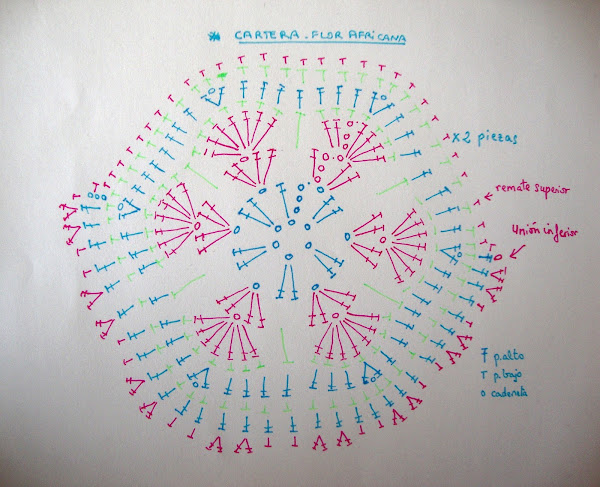 * CARTERA. FLOR AFRICANA
x 2 piezas
remate superior
Unión inferior
p. alto
T p. bajo
o cadeneta